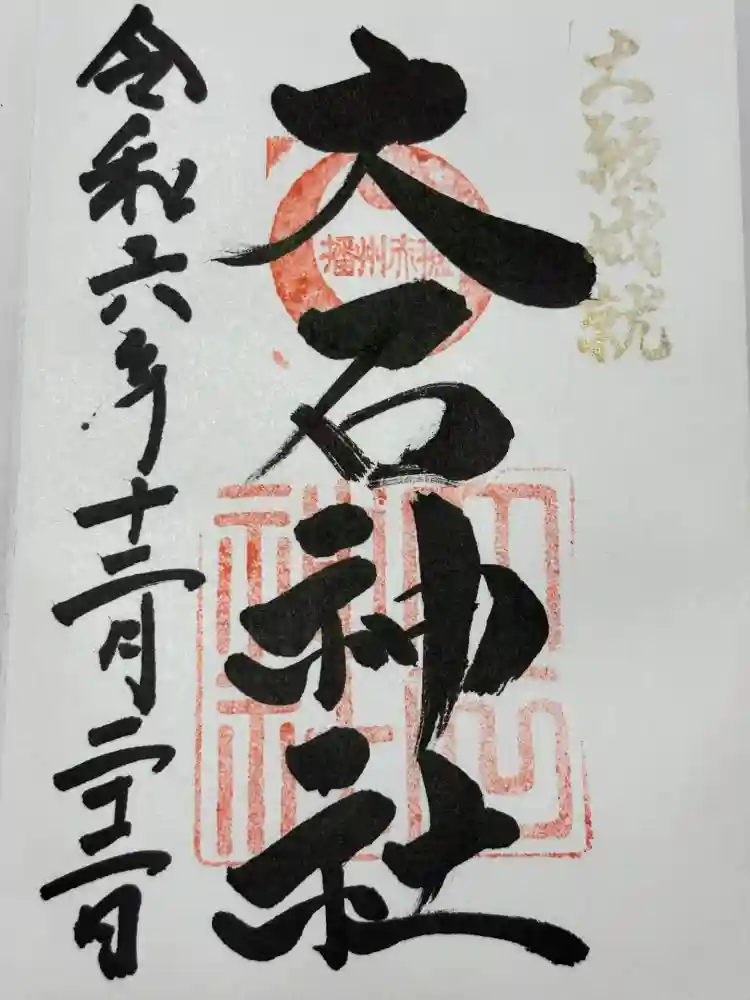 大願成就
大石神社
播州赤穂
令和六年十二月二十二日